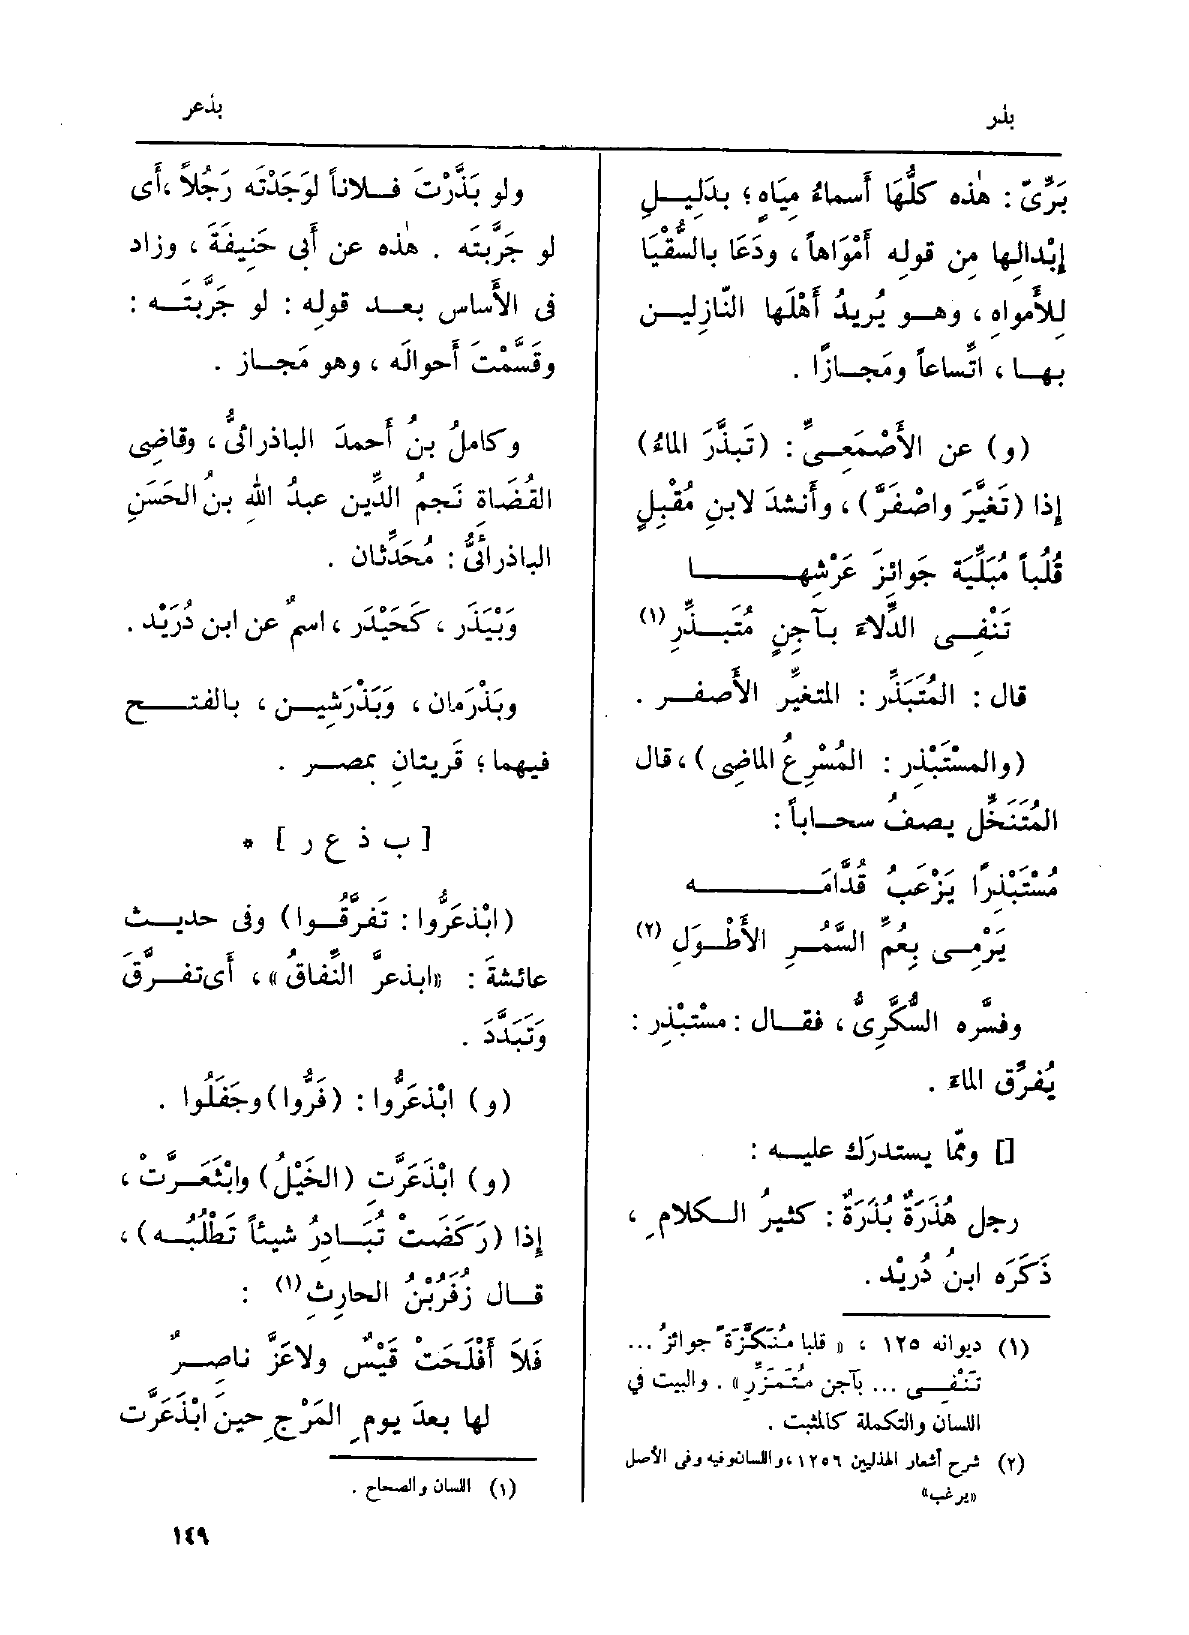 بذر
بذعر
بَرِّىّ : هٰذه كلُّهَا أَسماءُ مِيَاهٍ ؛ بدَلِيلِ
إِبْدالِها مِن قولِه أَمْوَاهاً ، ودَعَا بالسُّقْيَا
لِلأَمواهِ ، وهو يُرِيدُ أَهْلَها النّازلِين
بها ، اتِّساعاً ومَجازًا .
(و) عن الأَصْمَعِىِّ : (تَبذَّرَ الماءُ)
إِذا (تَغيَّرَ واصْفَرَّ) ، وأَنشدَ لابنِ مُقْبِلٍ
قُلْباً مُبَلِّيَة جَوائزَ عَرْشِها
تَنْفِى الدِّلاءَ بآجِنٍ مُتَبذِّرِ (١)
قال : المُتَبَذِّر : المتغيِّر الأَصفر .
(والمسْتَبْذِر : المُسْرِعُ الماضِى) ، قال
المُتَنَخِّل يصفُ سحاباً :
مُسْتَبْذِرًا يَزْعَبُ قُدَّامَه
يَرْمِى بِعُمِّ السَّمُرِ الأَطْوَلِ (٢)
وفسَّره السُّكَّرِىُّ ، فقال : مسْتَبْذِر :
يُفرِّق الماءَ .
[] وممّا يستدرَك عليه :
رجل هُذَرَةٌ بُذَرَةٌ : كثيرُ الكلامِ ،
ذَكَرَه ابنُ دُرَيْد .
(١) ديوانه ١٢٥ ، « قلبا مُنَكَّزَةً جوائزُ ...
تَنْفِى ... بآجن مُتَمَزِّرِ» . والبيت في
اللسان والتكملة كالمثبت .
(٢) شرح أشعار الهذليين ١٢٥٦ ، واللسان وفيه وفى الأصل
«يرغب»
ولو بَذَّرْتَ فلاناً لوَجَدْتَه رَجُلاً ، أَى
لو جَرَّبتَه . هٰذه عن أَبى حَنِيفَةَ ، وزاد
فى الأَساس بعد قوله : لو جَرَّبتَه :
وقَسَّمْتَ أَحوالَه ، وهو مَجاز .
وكاملُ بنُ أَحمدَ الباذرائىُّ ، وقاضِى
القُضَاةِ نَجمُ الدِّين عبدُ اللهِ بنُ الحَسَنِ
الباذرائىُّ : مُحَدِّثان .
وَبْيَذَر ، كَحَيْدَر ، اسمٌ عن ابن دُرَيْد .
وبَذْرَمان ، وَبَذْرَشِين ، بالفتح
فيهما ؛ قَريتانِ بمصر .
[ ب ذ ع ر ] *
(ابْذَعَرُّوا : تَفرَّقُوا) وفى حديث
عائشةَ : «ابذعرَّ النِّفاقُ» ، أَى تفرَّقَ
وَتَبَدَّدَ .
(و) ابْذَعَرُّوا : (فَرُّوا) وجَفَلُوا .
(و) ابْذَعَرَّتِ (الخَيْلُ) وابْثَعَرَّتْ ،
إِذا (رَكَضَتْ تُبَادِرُ شيئاً تَطْلُبُه) ،
قال زُفَرُ بْنُ الحارِثِ (١) :
فَلاَ أَفْلَحَتْ قَيْسٌ ولاعَزَّ ناصِرٌ
لها بعدَ يومِ المَرْجِ حينَ ابْذَعَرَّت
(١) اللسان والصحاح .
١٤٩